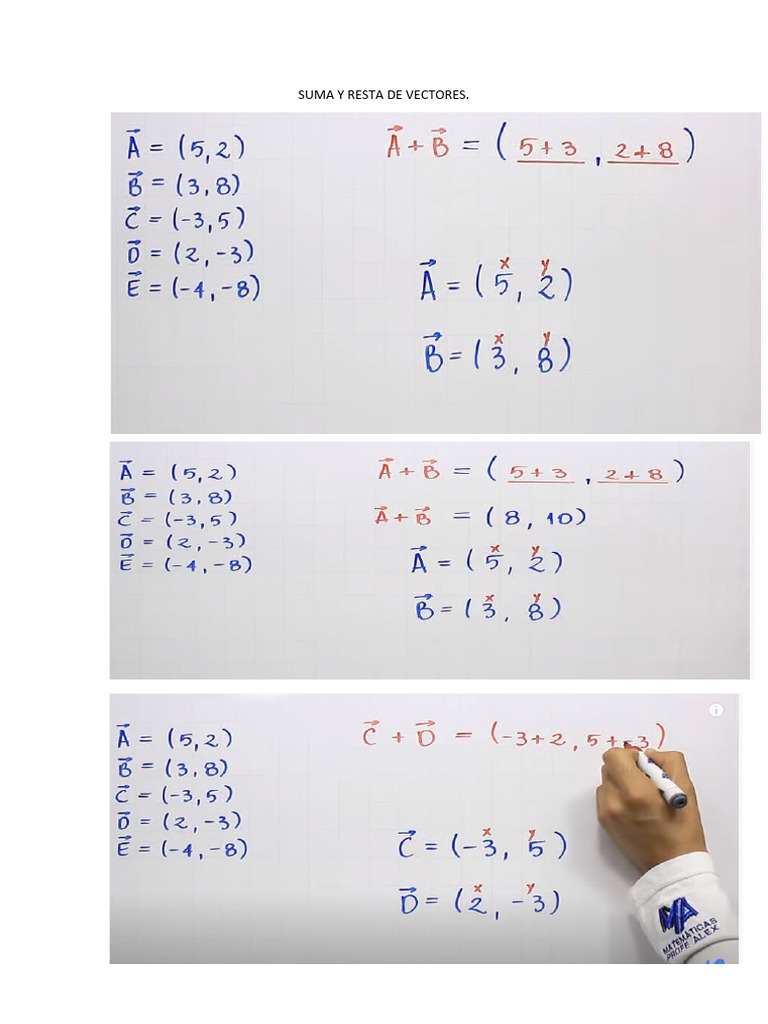 SUMA Y RESTA DE VECTORES.
A⃗ = (5, 2)
B⃗ = (3, 8)
C⃗ = (-3, 5)
D⃗ = (2, -3)
E⃗ = (-4, -8)
A⃗ + B⃗ = ( 5+3 , 2+8 )
x y
A⃗ = ( 5, 2 )
x y
B⃗ = ( 3, 8 )
A⃗ = (5, 2)
B⃗ = (3, 8)
C⃗ = (-3, 5)
D⃗ = (2, -3)
E⃗ = (-4, -8)
A⃗ + B⃗ = ( 5+3 , 2+8 )
A⃗ + B⃗ = ( 8, 10 )
x y
A⃗ = ( 5, 2 )
x y
B⃗ = ( 3, 8 )
A⃗ = (5, 2)
B⃗ = (3, 8)
C⃗ = (-3, 5)
D⃗ = (2, -3)
E⃗ = (-4, -8)
C⃗ + D⃗ = (-3+2, 5+-3)
x y
C⃗ = (-3, 5)
x y
D⃗ = (2, -3)
i
MA
MATEMÁTICAS
PROFE ALEX